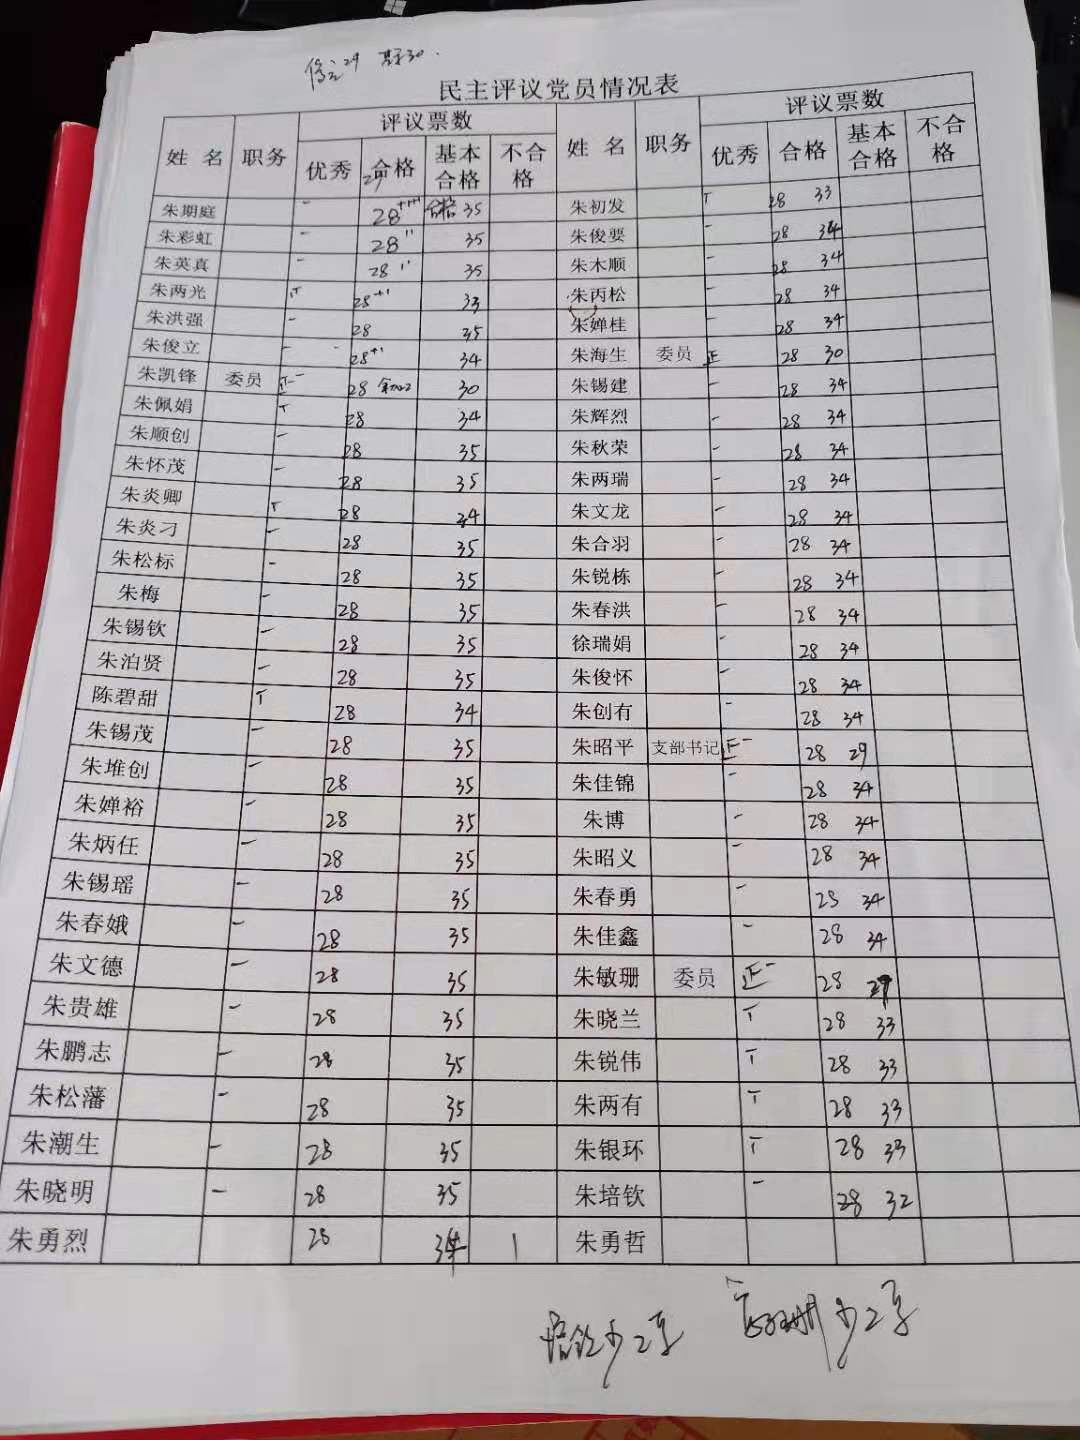 民主评议党员情况表
姓 名 职务 评议票数 姓 名 职务 评议票数
优秀 合格 基本合格 不合格 优秀 合格 基本合格 不合格
朱期庭 一 28 35 朱初发 T 28 33
朱彩虹 一 28 35 朱俊要 一 28 34
朱英真 一 28 35 朱木顺 一 28 34
朱两光 T 28 33 朱丙松 一 28 34
朱洪强 一 28 35 朱婵桂 一 28 34
朱俊立 一 28 34 朱海生 委员 正 28 30
朱凯锋 委员 正一 28 30 朱锡建 一 28 34
朱佩娟 T 28 34 朱辉烈 一 28 34
朱顺创 一 28 35 朱秋荣 一 28 34
朱怀茂 一 28 35 朱两瑞 一 28 34
朱炎卿 T 28 34 朱文龙 一 28 34
朱炎刁 一 28 35 朱合羽 一 28 34
朱松标 一 28 35 朱锐栋 一 28 34
朱梅 一 28 35 朱春洪 一 28 34
朱锡钦 一 28 35 徐瑞娟 一 28 34
朱泊贤 一 28 35 朱俊怀 一 28 34
陈碧甜 T 28 34 朱创有 一 28 34
朱锡茂 一 28 35 朱昭平 支部书记 正一 28 29
朱堆创 一 28 35 朱佳锦 一 28 34
朱婵裕 一 28 35 朱博 一 28 34
朱炳任 一 28 35 朱昭义 一 28 34
朱锡瑶 一 28 35 朱春勇 一 28 34
朱春娥 一 28 35 朱佳鑫 一 28 34
朱文德 一 28 35 朱敏珊 委员 正一 28 29
朱贵雄 一 28 35 朱晓兰 T 28 33
朱鹏志 一 28 35 朱锐伟 T 28 33
朱松藩 一 28 35 朱两有 T 28 33
朱潮生 一 28 35 朱银环 T 28 33
朱晓明 一 28 35 朱培钦 一 28 32
朱勇烈 28 34 1 朱勇哲